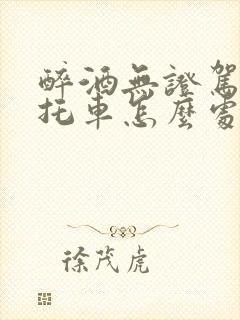 醉酒無證駕
托車怎麼處
徐茂虎